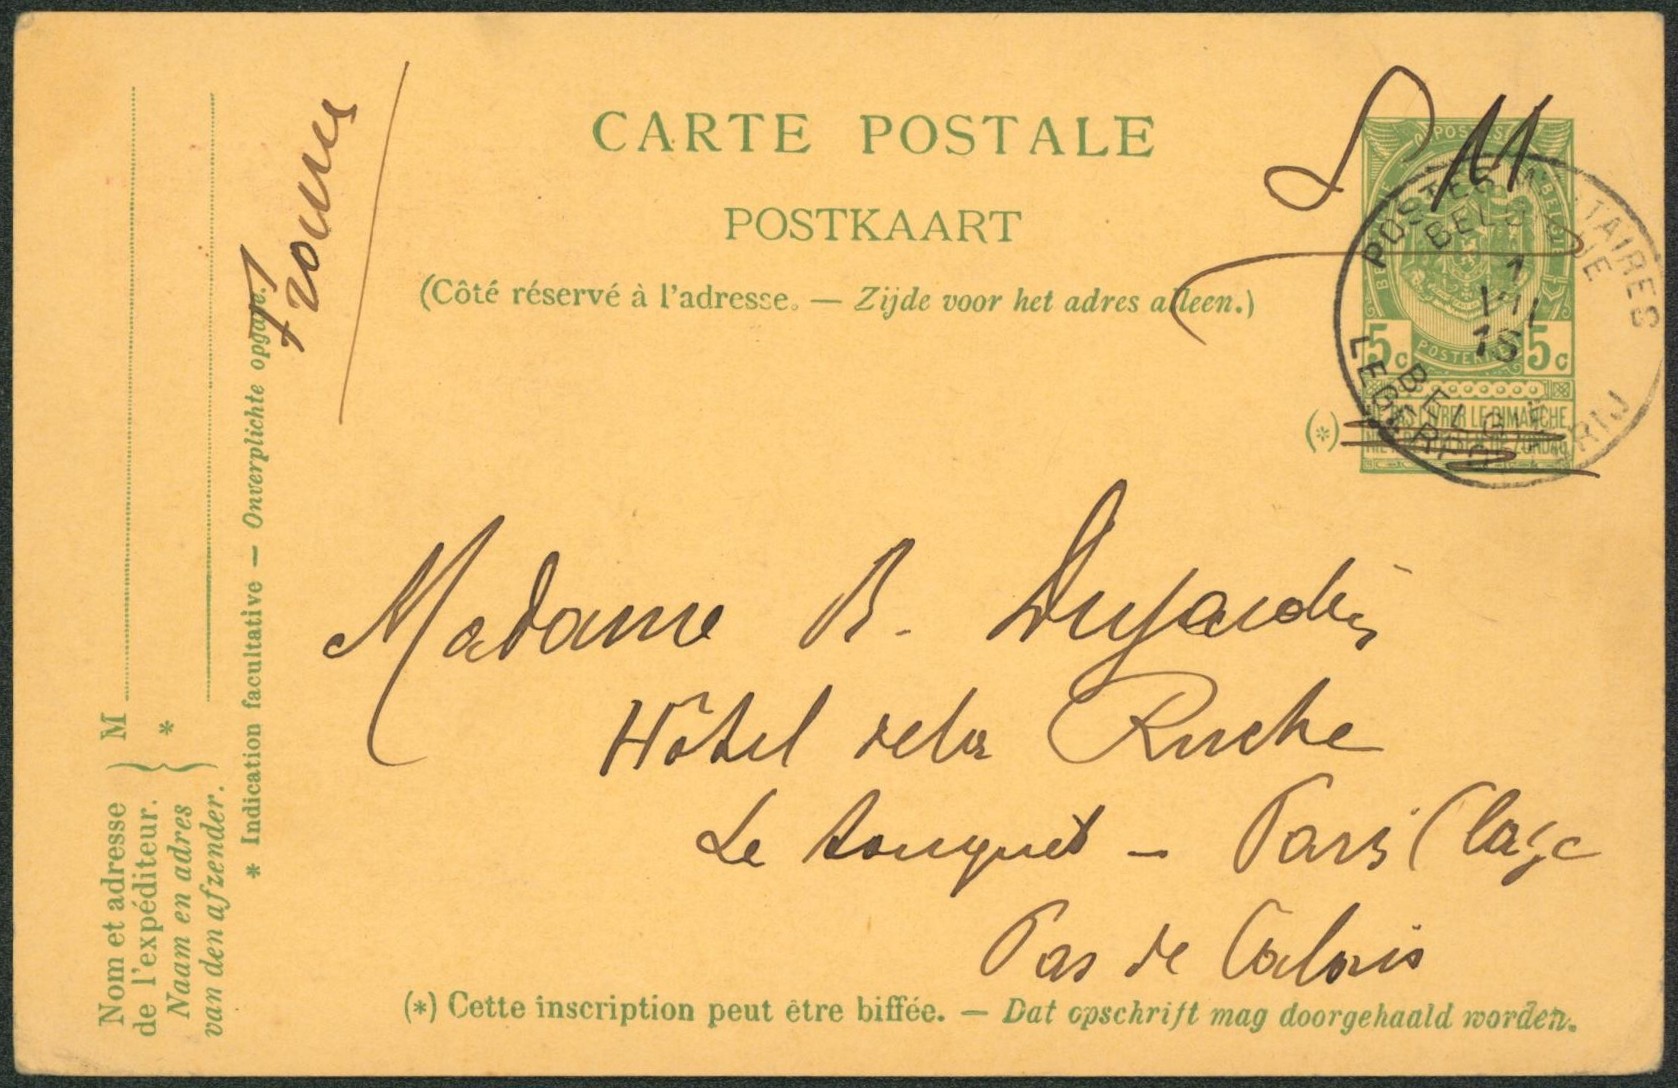 CARTE POSTALE
POSTKAART
(Côté réservé à l'adresse. — Zijde voor het adres alleen.)
S M
POSTES MILITAIRES
BELGIQUE
1
VII
16
BELGIË
LEGERPOSTERIJ
5c 5c
POSTERIJEN
NE PAS LIVRER LE DIMANCHE
NIET BESTELLEN OP ZONDAG
(*)
Madame B. Dujardin
Hôtel de la Ruche
Le Touquet - Paris Plage
Pas de Calais
(*) Cette inscription peut être biffée. — Dat opschrift mag doorgehaald worden.
Nom et adresse
de l'expéditeur.
Naam en adres
van den afzender.
M
*
* Indication facultative — Onverplichte opgave.